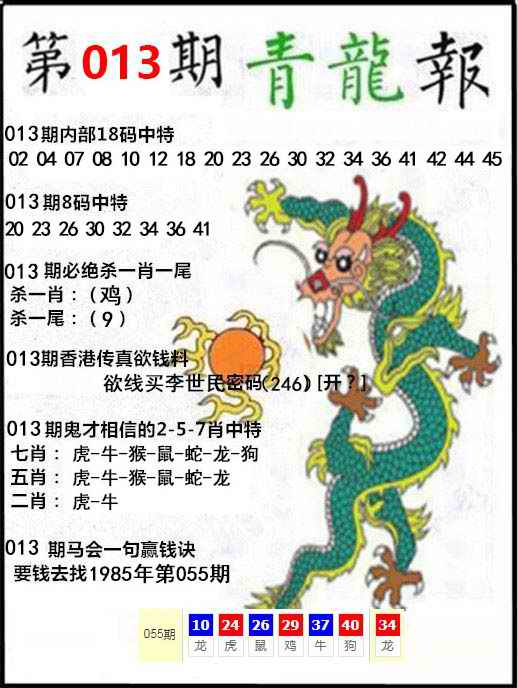 第013期青龍報
013期内部18码中特
02 04 07 08 10 12 18 20 23 26 30 32 34 36 41 42 44 45
013期8码中特
20 23 26 30 32 34 36 41
013 期必绝杀一肖一尾
杀一肖：（鸡）
杀一尾：（9）
013期香港传真欲钱料
欲线买李世民密码(246) [开？]
013期鬼才相信的2-5-7肖中特
七肖：虎-牛-猴-鼠-蛇-龙-狗
五肖：虎-牛-猴-鼠-蛇-龙
二肖：虎-牛
013 期马会一句赢钱诀
要钱去找1985年第055期
055期 10 24 26 29 37 40 34
龙 虎 鼠 鸡 牛 狗 龙